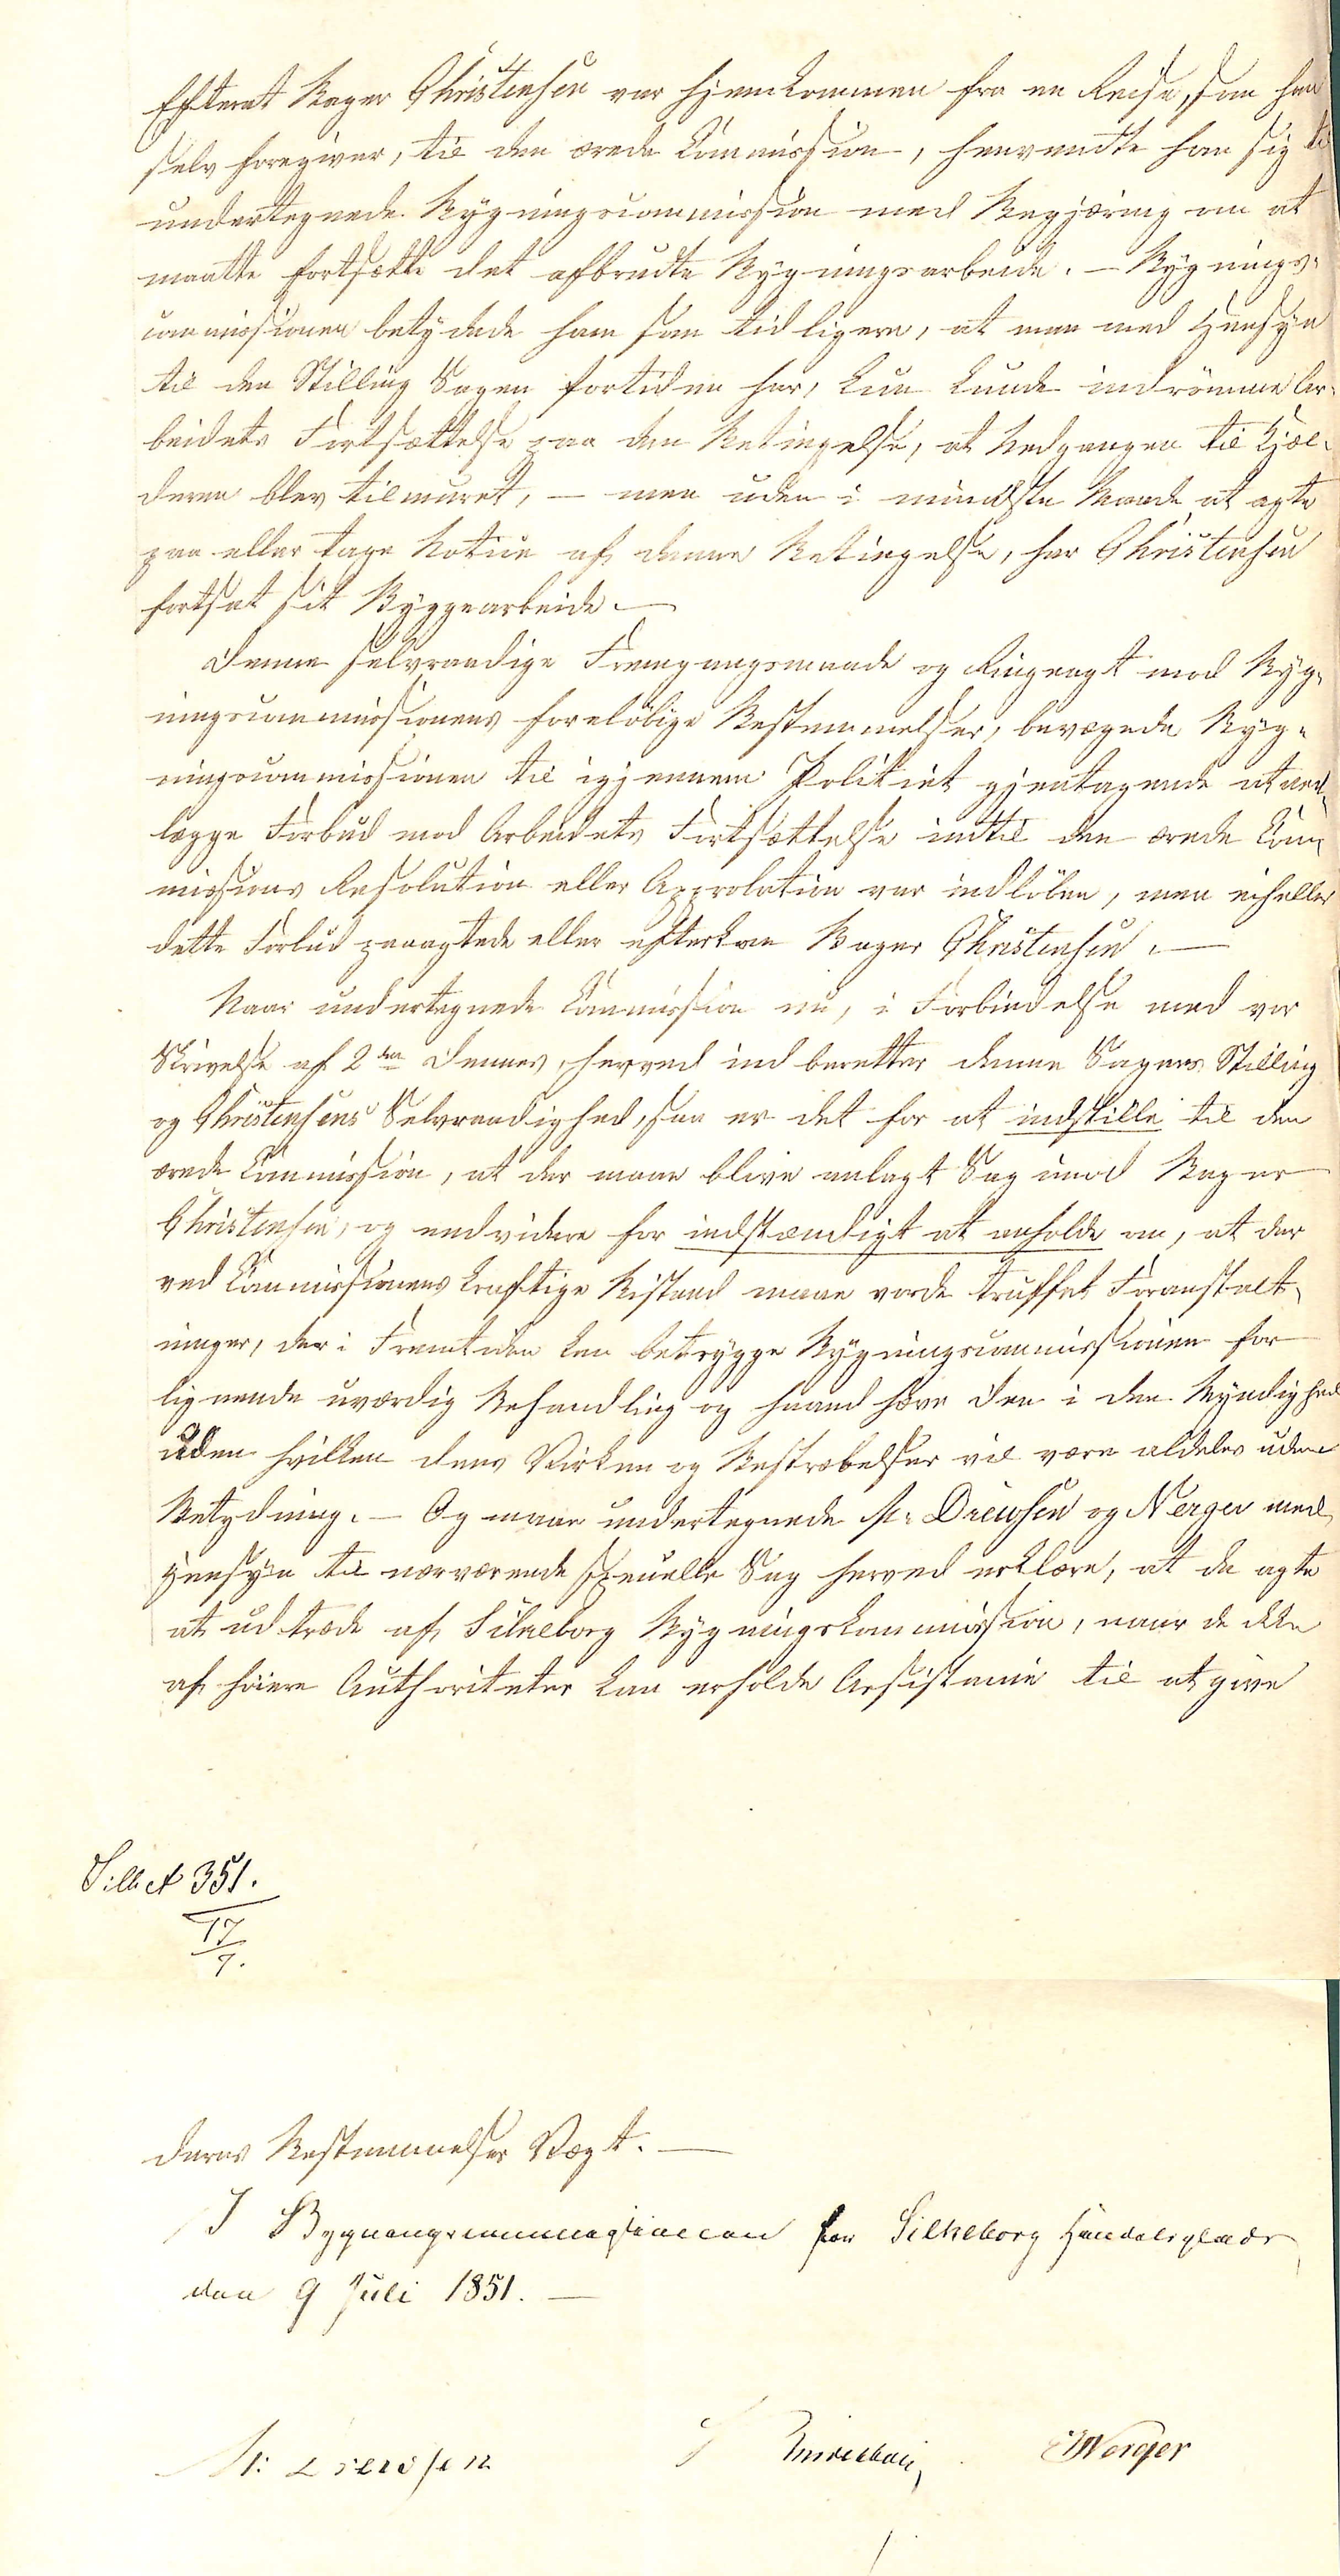 Efterat Bager Christensen var hjemkommen fra en Reise, som han
selv foregiver, til den ærede Commission, henvendte han sig til
undertegnede Bygningscommission med Begjæring om at
maatte fortsætte det afbrudte Bygningsarbeide. — Bygnings-
commissionen betydede ham som tidligere, at man med Hensyn
til den Stilling Sagen fortiden har, kun kunde indrömme Ar-
beidets Fortsættelse paa den Betingelse, at Nedgangen til Kjæl-
deren blev tilmuret, — men uden i mindste Maade at agte
paa eller tage Notice af denne Betingelse, har Christensen
fortsat sit Byggearbeide. —
Denne selvraadige Fremgangsmaade og Ringeagt mod Byg-
ningscommissionens foreløbige Bestemmelser, bevægede Byg-
ningscommissionen til igjennem Politiet gjentagende at ned-
lægge Forbud mod Arbeidets Fortsættelse indtil den ærede Com-
missions Resolution eller Approbation var indløben, men eiheller
dette Forbud paaagtede eller efterkom Bager Christensen. —
Naar undertegnede Commission nu, i Forbindelse med vor
Skrivelse af 2den dennes, herved indberetter denne Sagens Stilling
og Christensens Selvraadighed, saa er det for at indstille til den
ærede Commission, at der maae blive anlagt Sag imod Bager
Christensen, og endvidere for indstændigt at anholde om, at der
ved Commissionens kraftige Bistand maae vorde truffet Foranstalt-
ninger, der i Fremtiden kan betrygge Bygningscommissionen for
lignende uværdig Behandling og haandhæve den i den Myndighed
uden hvilken dens Virken og Bestræbelser vil være aldeles uden
Betydning. — Og maae undertegnede M. Drewsen og Nerger med
Hensyn til nærværende specielle Sag herved erklære, at de agte
at udtræde af Silkeborg Bygningskommission, naar de ikke
af höiere Authoriteter kan erholde Assistance til at give
Silk 351.
17/7.
deres Bestemmelser Vægt. —
I Bygningscommissionen for Silkeborg Handelsplads
den 9 Juli 1851. —
M: Drewsen
Nerger